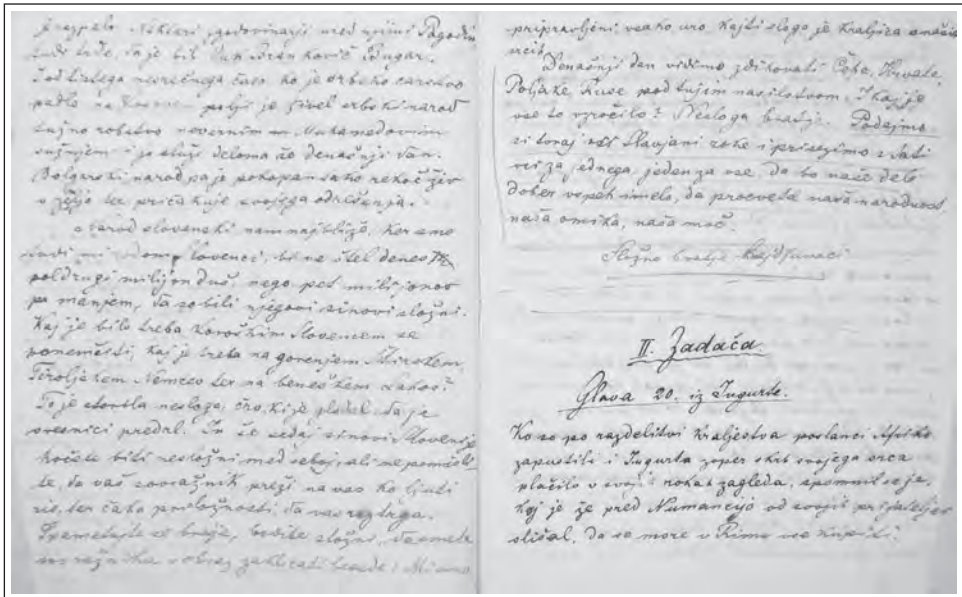 je razpalo. Nekteri zgodovinarji med njimi Pogodin
tudi trde, da je bil Vuk Brankovič Bugar.
Od tistega nesrečnega časa, ko je srbsko carstvo
padlo na Kosovem polji je živel srbski narod
tužno robstvo nevernim Muhamedovim
sužnjem i je služi deloma še denašnji dan.
Bolgarski narod pa je pokopan tako rekoč živ
v ter pričakuje svojega odrešenja.
Narod slovenski nam najbližé, ker smo
tudi mi rodom Slovenci, bi ne štel denes
poldrugi milijon duš, nego pet milijonov
po manjem, da so bili njegovi sinovi složni.
Kaj je bilo treba koroškim Slovencem se
ponemčiti, kaj je treba na gorenjem Štirskem,
Tiroljskem Nemcev ter na beneškem Lahov?
To je storila nesloga, črv, ki je glodal, da je
predrl. In še sedaj sinovi Slovenije
hočete biti nesložni med seboj, ali ne pomislite
te, da vaš sovražnik preži na vas ko ljuti
ris, ter čaka priložnosti, da vas raztrga.
Spametujte se bratje, bodite složni, da smete
sovražniku v obraz zaklicati besede: Mi smo
pripravljeni vsako uro, kajti sloga je kraljica
Denašnji dan vidimo zdihovati Čehe, Hrvate,
Poljake, Ruse pod tujim nasilstvom. I kaj je
vse to vzročilo? Nesloga bratje. Podajmo
si toraj vsi Slavjani roke i prisezimo stati
vsi za jednega, jeden za vse, da bo naše delo
dober vspeh imelo, da procveta naša narodnost,
naša omika, naša moč.
Složno bratje
II. Zadača
Glava 20. iz Jugurte.
Ko so po razdelitvi kraljestva poslanci Afriko
zapustili i Jugurta zoper skrb svojega srca
plačilo v svojih rokah zagleda, spomnil se je,
kaj je že pred Numancijo od svojih prijateljev
slišal, da se more v Rimu vse kupiti.